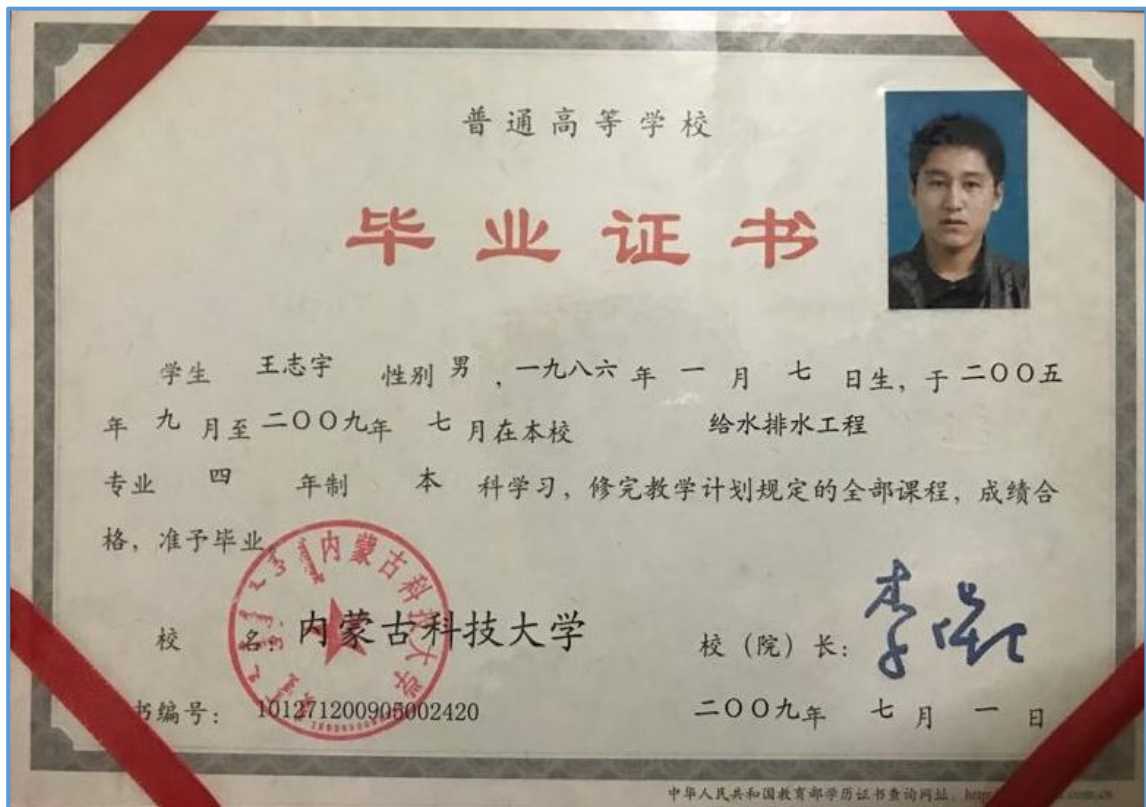 普通高等学校
毕业证书
学生 王志宇 性别 男 ，一九八六 年 一 月 七 日生，于 二〇〇五
年 九 月至 二〇〇九年 七 月在本校 给水排水工程
专业 四 年制 本 科学习，修完教学计划规定的全部课程，成绩合
格，准予毕业
内蒙古科技大学
校 名：内蒙古科技大学 校（院）长：
书编号： 101271200905002420 二〇〇九年 七 月 一 日
中华人民共和国教育部学历证书查询网址：http